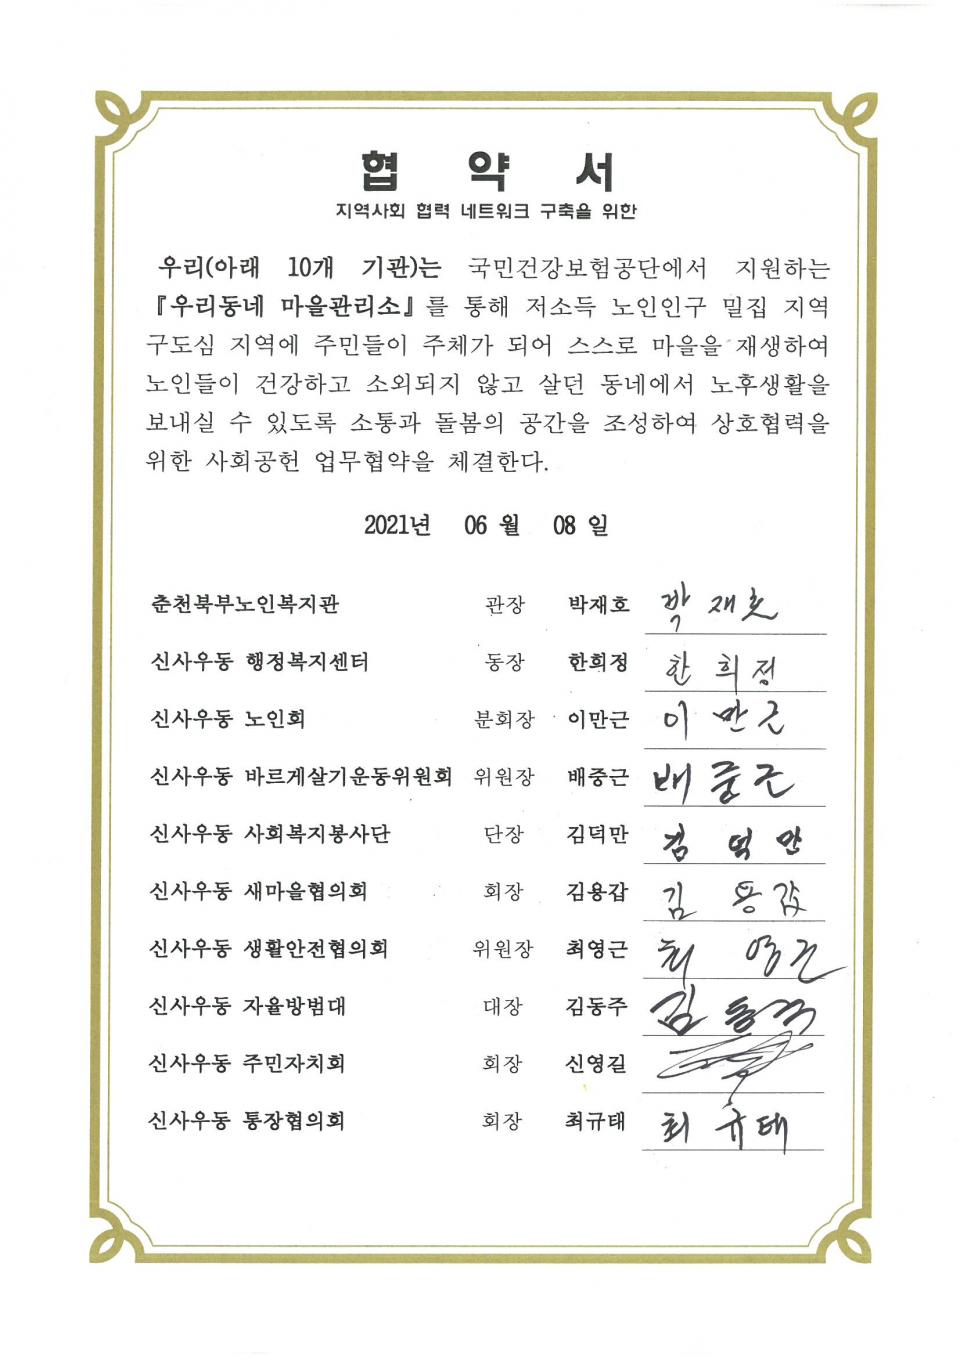 협 약 서
지역사회 협력 네트워크 구축을 위한
우리(아래 10개 기관)는 국민건강보험공단에서 지원하는
『우리동네 마을관리소』를 통해 저소득 노인인구 밀집 지역
구도심 지역에 주민들이 주체가 되어 스스로 마을을 재생하여
노인들이 건강하고 소외되지 않고 살던 동네에서 노후생활을
보내실 수 있도록 소통과 돌봄의 공간을 조성하여 상호협력을
위한 사회공헌 업무협약을 체결한다.
2021년 06 월 08 일
춘천북부노인복지관 관장 박재호 박재호
신사우동 행정복지센터 동장 한희정 한희정
신사우동 노인회 분회장 이만근 이만근
신사우동 바르게살기운동위원회 위원장 배중근 배중근
신사우동 사회복지봉사단 단장 김덕만 김덕만
신사우동 새마을협의회 회장 김용갑 김용갑
신사우동 생활안전협의회 위원장 최영근 최영근
신사우동 자율방범대 대장 김동주 김동주
신사우동 주민자치회 회장 신영길
신사우동 통장협의회 회장 최규태 최규태